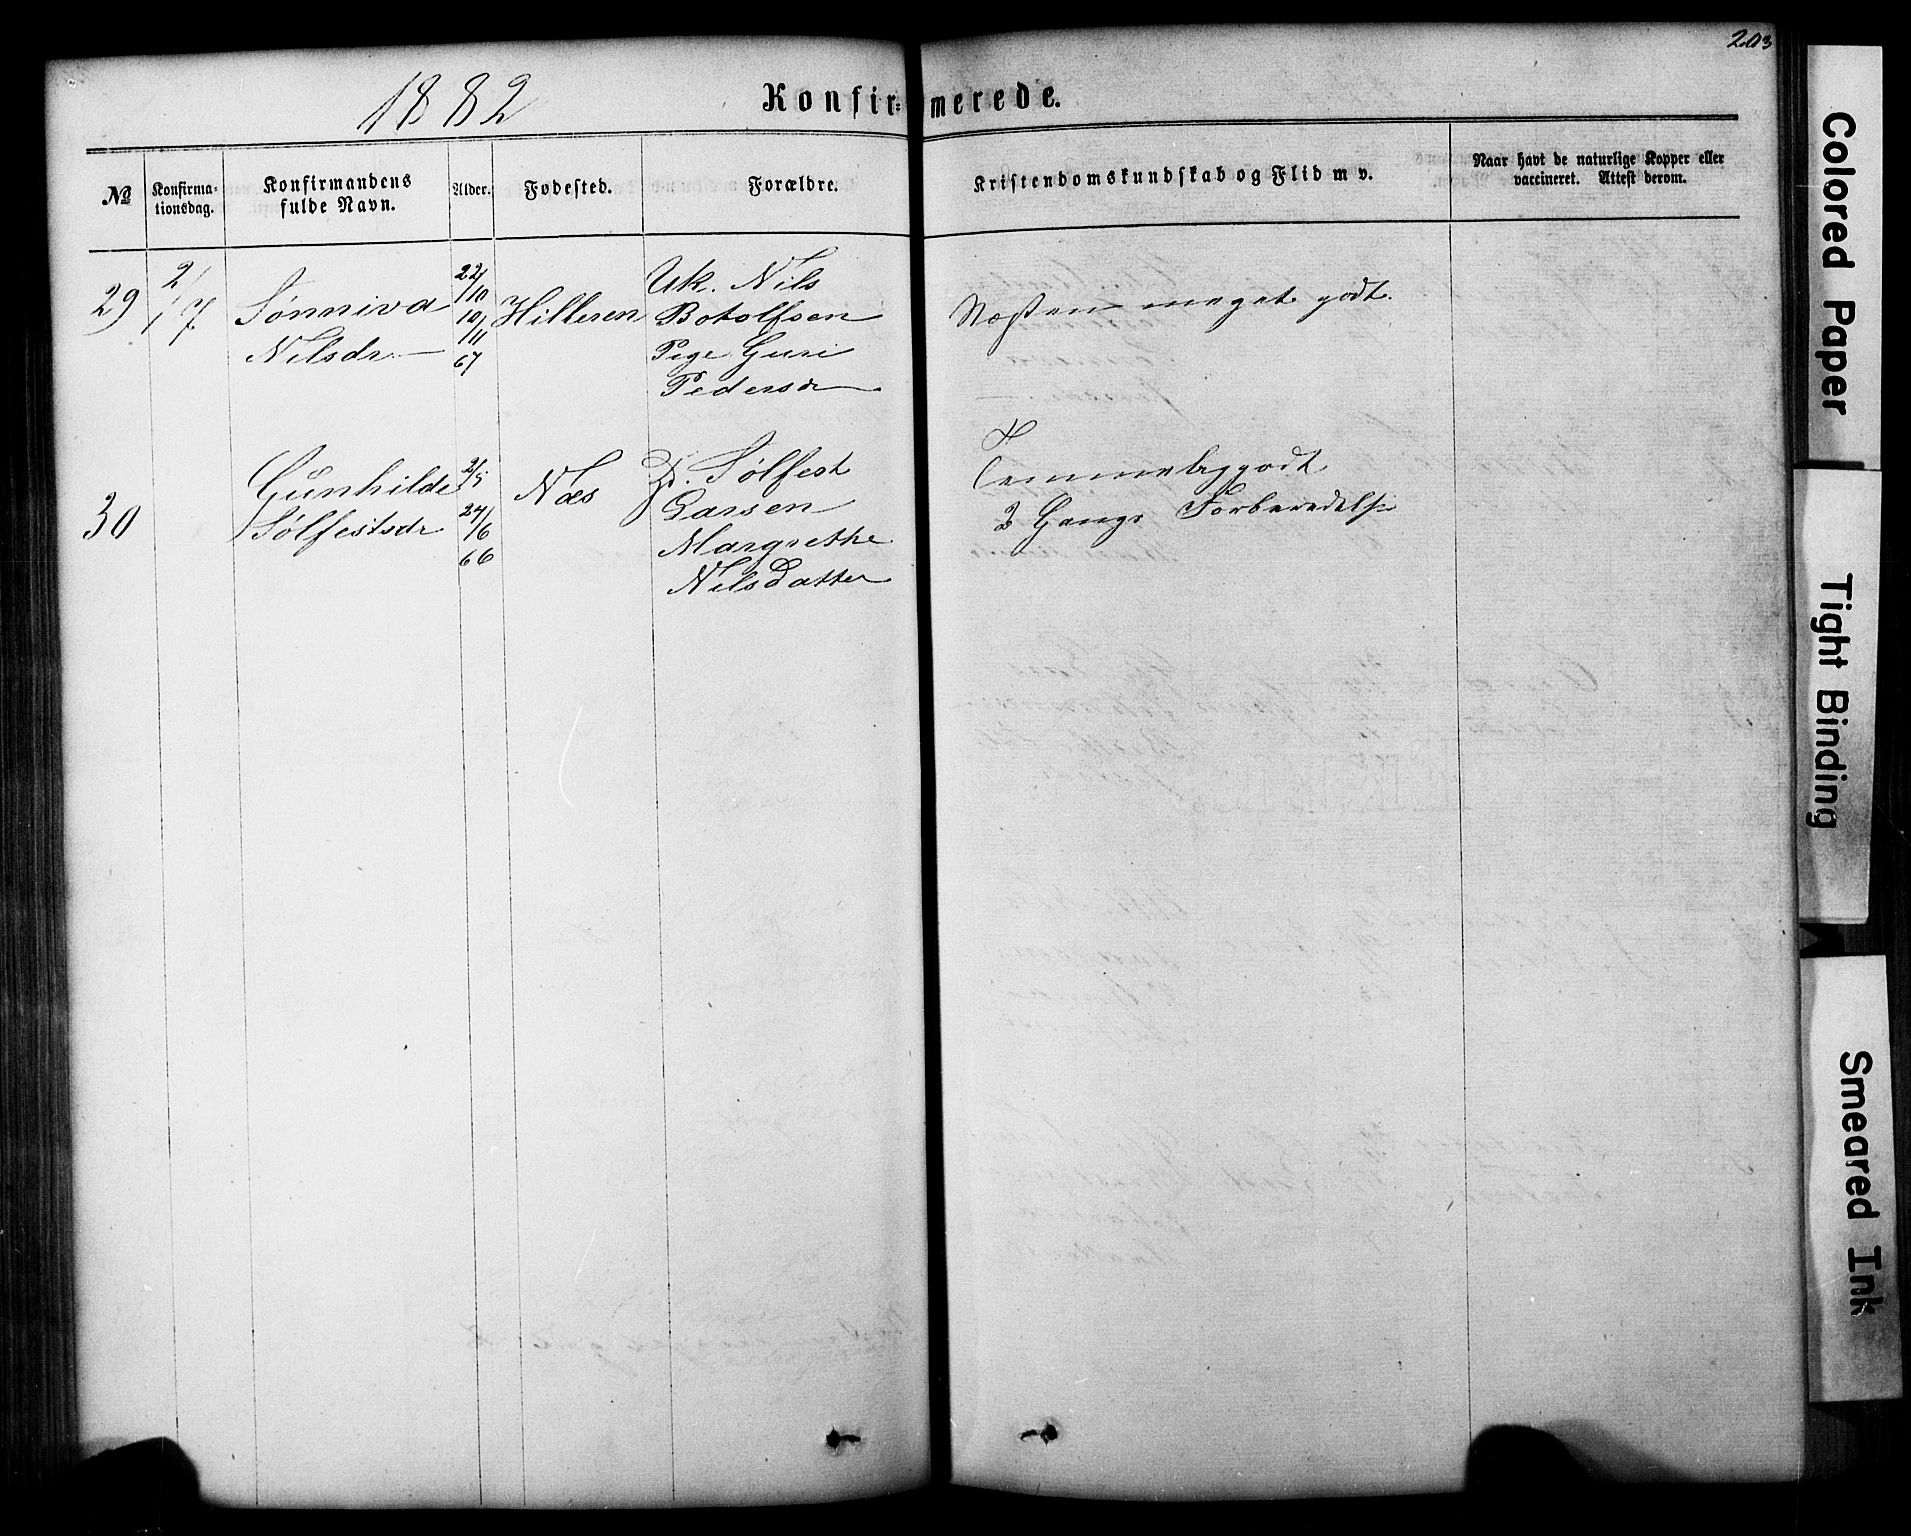 203
1882
Konfir= merede.
№
Konfirma=
tionsdag.
Konfirmandens
fulde Navn.
Alder.
Fødested.
Forældre.
Kristendomskundskab og Flid m v.
Naar havt de naturlige Kopper eller
vaccineret. Attest derom.
29
2/7
Sønniva
Nilsdr
22/10
10/11
67
Hilleren
Uk. Nils
Botolfsen
Pige Guri
Pedersdr
Næsten meget godt.
30
Gunhilde
Sølfestsdr
2/5
24/6
66
Næs
Sølfest
Larsen
Margrethe
Nilsdatter
Temmelig godt
2 Gangs Forberedelse
Colored Paper
Tight Binding
Smeared Ink